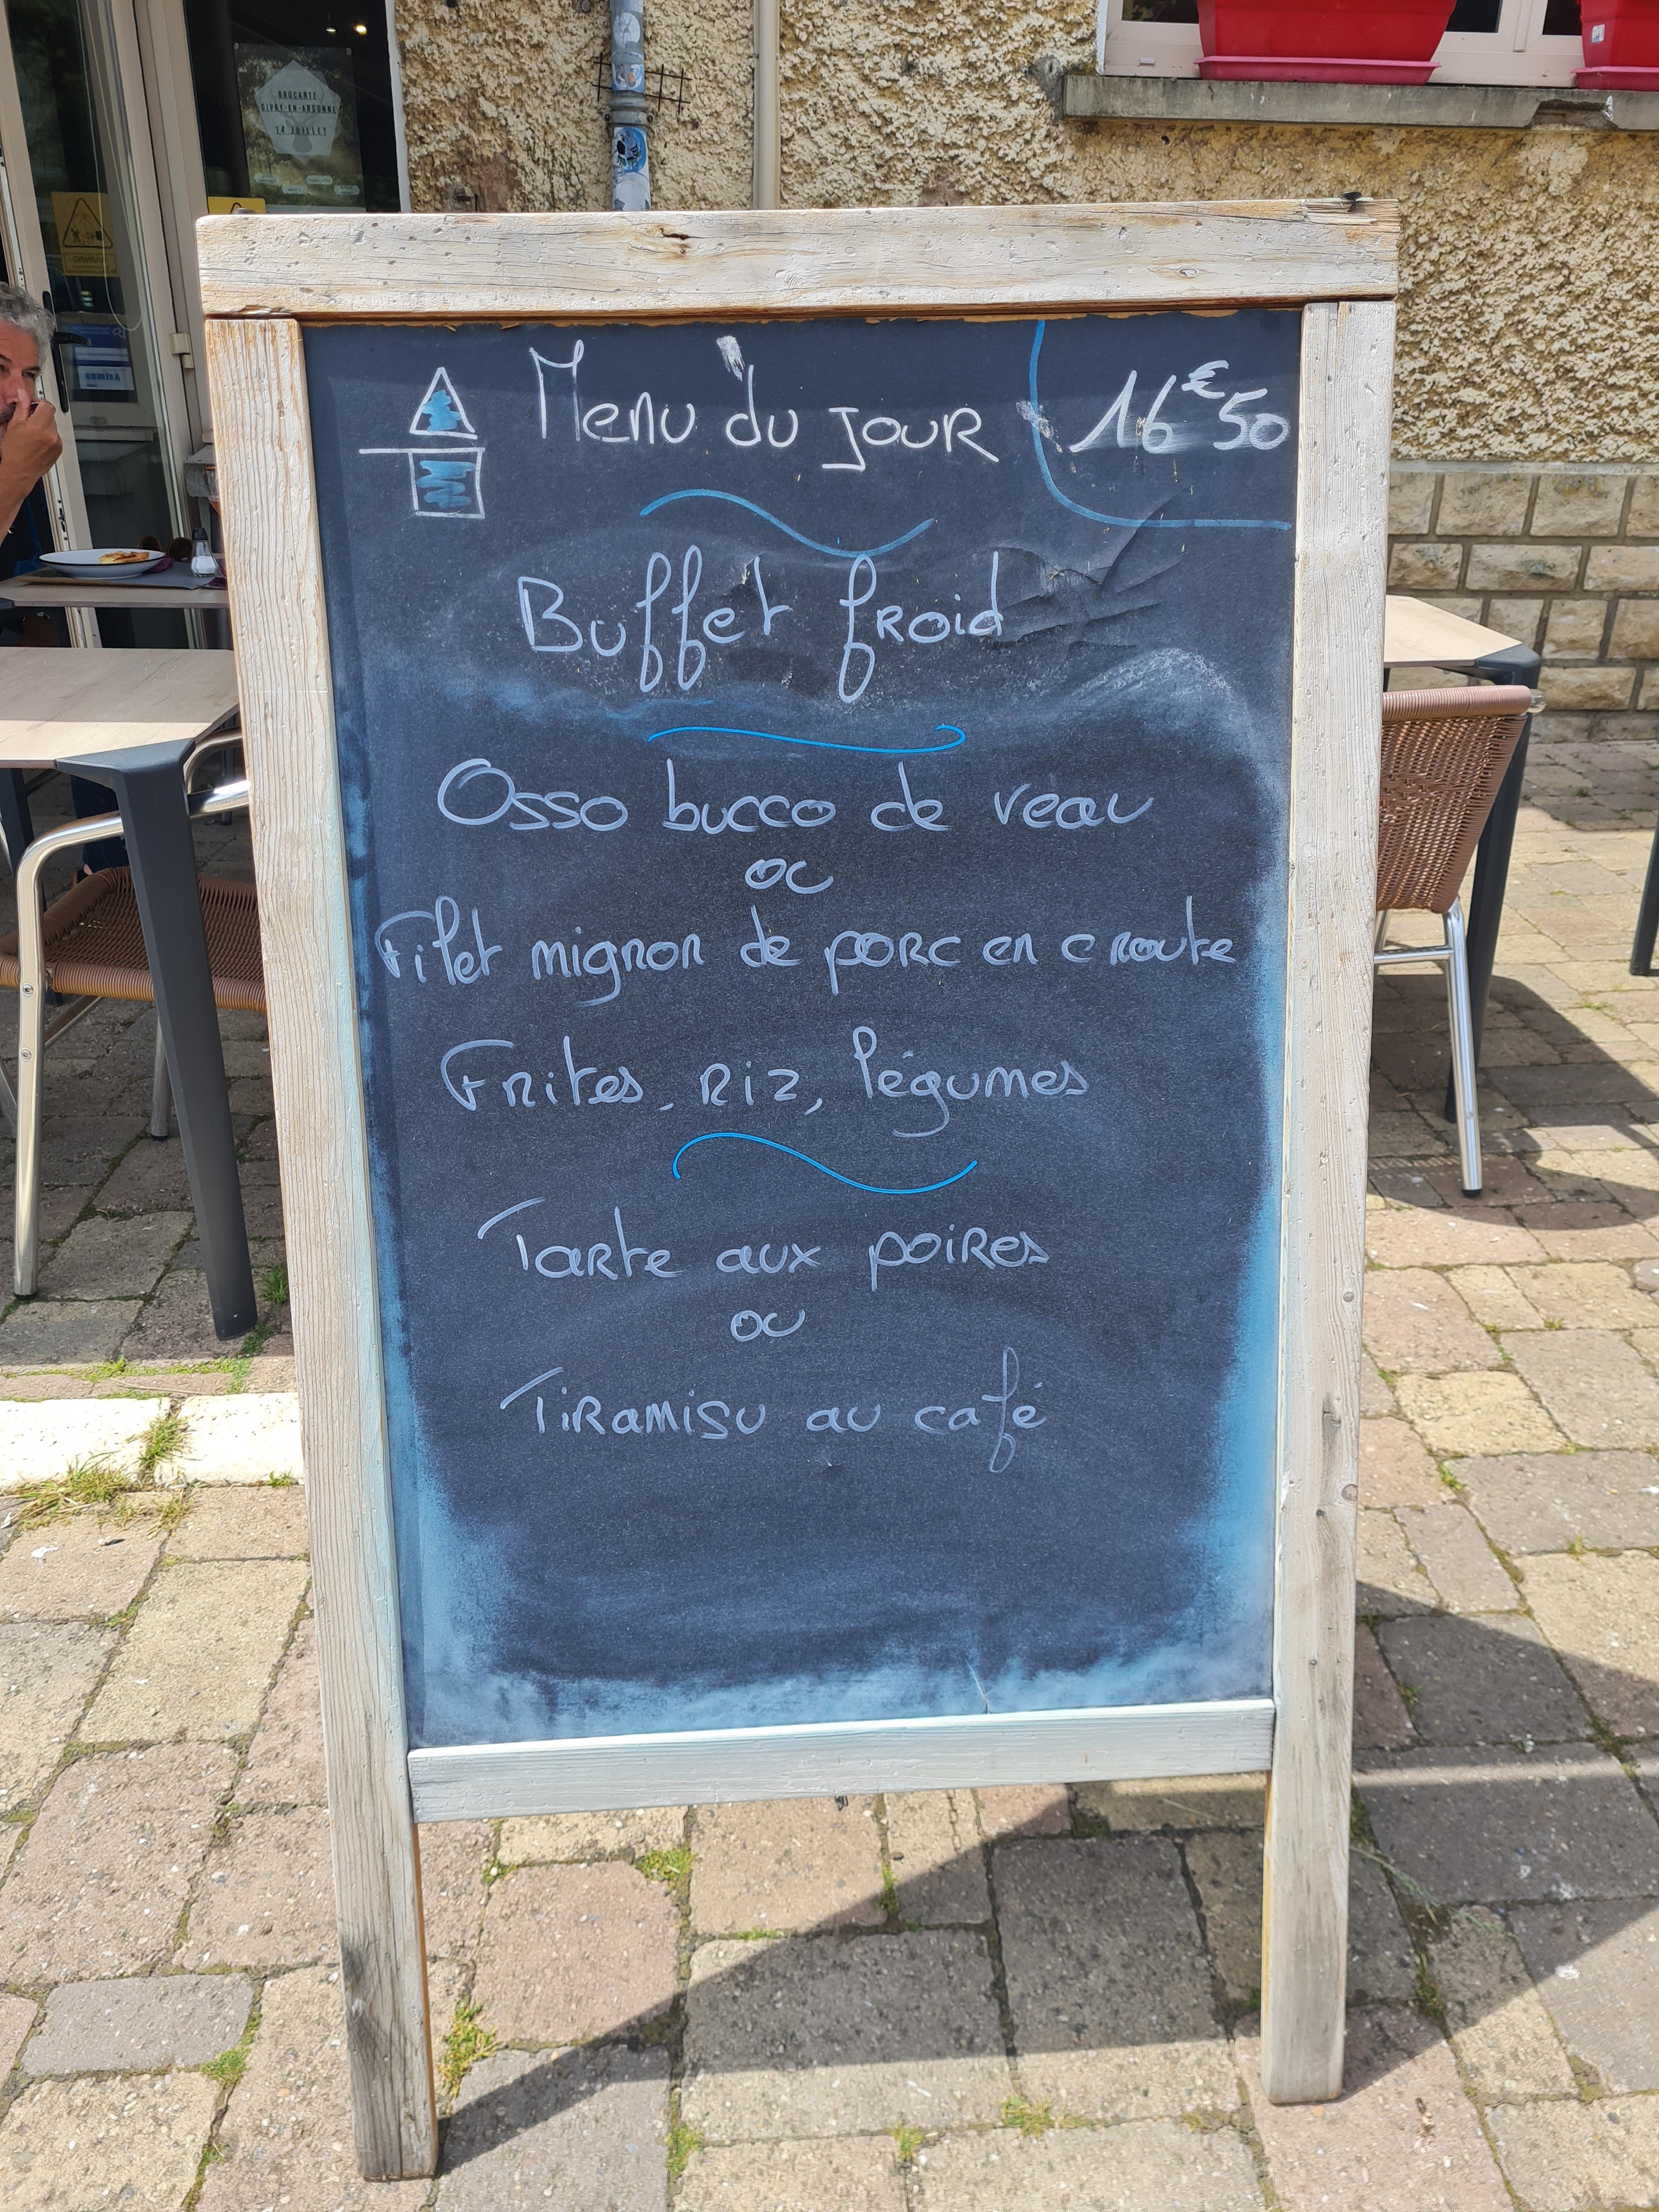 BROCANTE
GIVRY-EN-ARGONNE
14 JUILLET
Menu du jour
16€50
Buffet froid
Osso bucco de veau
ou
Filet mignon de porc en croute
Frites, riz, légumes
Tarte aux poires
ou
Tiramisu au café